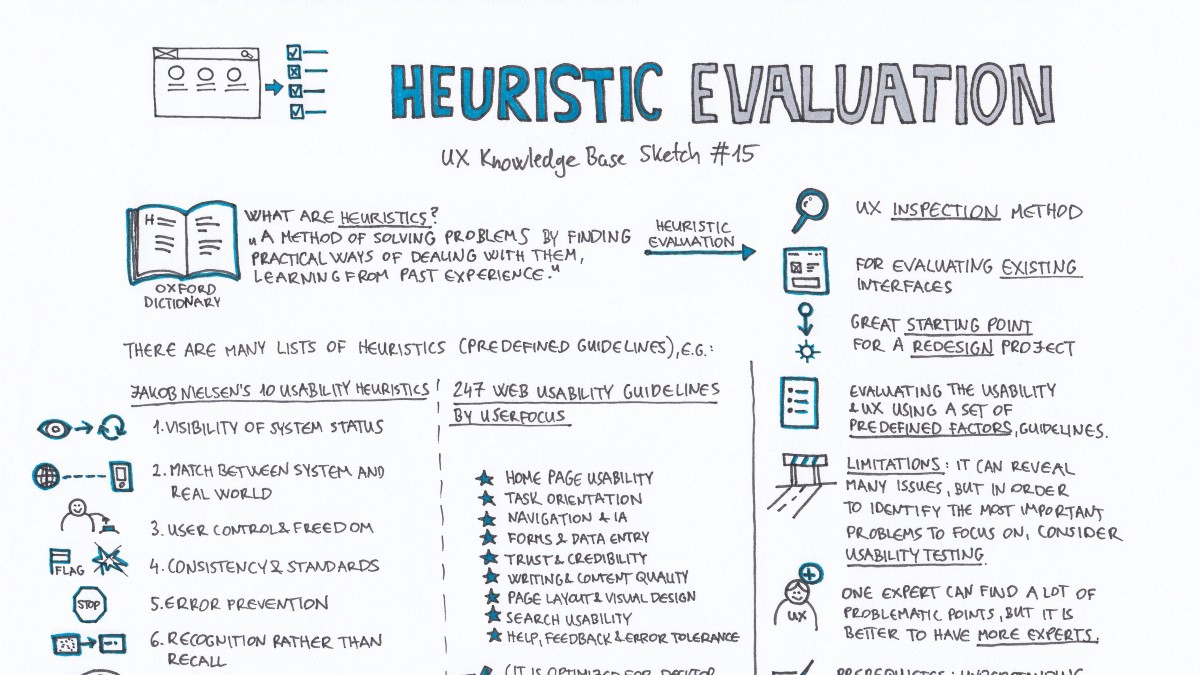 HEURISTIC EVALUATION
UX Knowledge Base Sketch #15
H
OXFORD
DICTIONARY
WHAT ARE HEURISTICS?
„A METHOD OF SOLVING PROBLEMS BY FINDING
PRACTICAL WAYS OF DEALING WITH THEM,
LEARNING FROM PAST EXPERIENCE."
HEURISTIC
EVALUATION
THERE ARE MANY LISTS OF HEURISTICS (PREDEFINED GUIDELINES), E.G.:
JAKOB NIELSEN'S 10 USABILITY HEURISTICS
1. VISIBILITY OF SYSTEM STATUS
2. MATCH BETWEEN SYSTEM AND
REAL WORLD
3. USER CONTROL & FREEDOM
FLAG
4. CONSISTENCY & STANDARDS
STOP
5. ERROR PREVENTION
6. RECOGNITION RATHER THAN
RECALL
247 WEB USABILITY GUIDELINES
BY USERFOCUS
HOME PAGE USABILITY
TASK ORIENTATION
NAVIGATION & IA
FORMS & DATA ENTRY
TRUST & CREDIBILITY
WRITING & CONTENT QUALITY
PAGE LAYOUT & VISUAL DESIGN
SEARCH USABILITY
HELP, FEEDBACK & ERROR TOLERANCE
(IT IS OPTIMIZED FOR DESKTOP
UX INSPECTION METHOD
FOR EVALUATING EXISTING
INTERFACES
GREAT STARTING POINT
FOR A REDESIGN PROJECT
EVALUATING THE USABILITY
& UX USING A SET OF
PREDEFINED FACTORS, GUIDELINES.
LIMITATIONS: IT CAN REVEAL
MANY ISSUES, BUT IN ORDER
TO IDENTIFY THE MOST IMPORTANT
PROBLEMS TO FOCUS ON, CONSIDER
USABILITY TESTING.
UX
ONE EXPERT CAN FIND A LOT OF
PROBLEMATIC POINTS, BUT IT IS
BETTER TO HAVE MORE EXPERTS.
PREREQUISITES: UNDERSTANDING